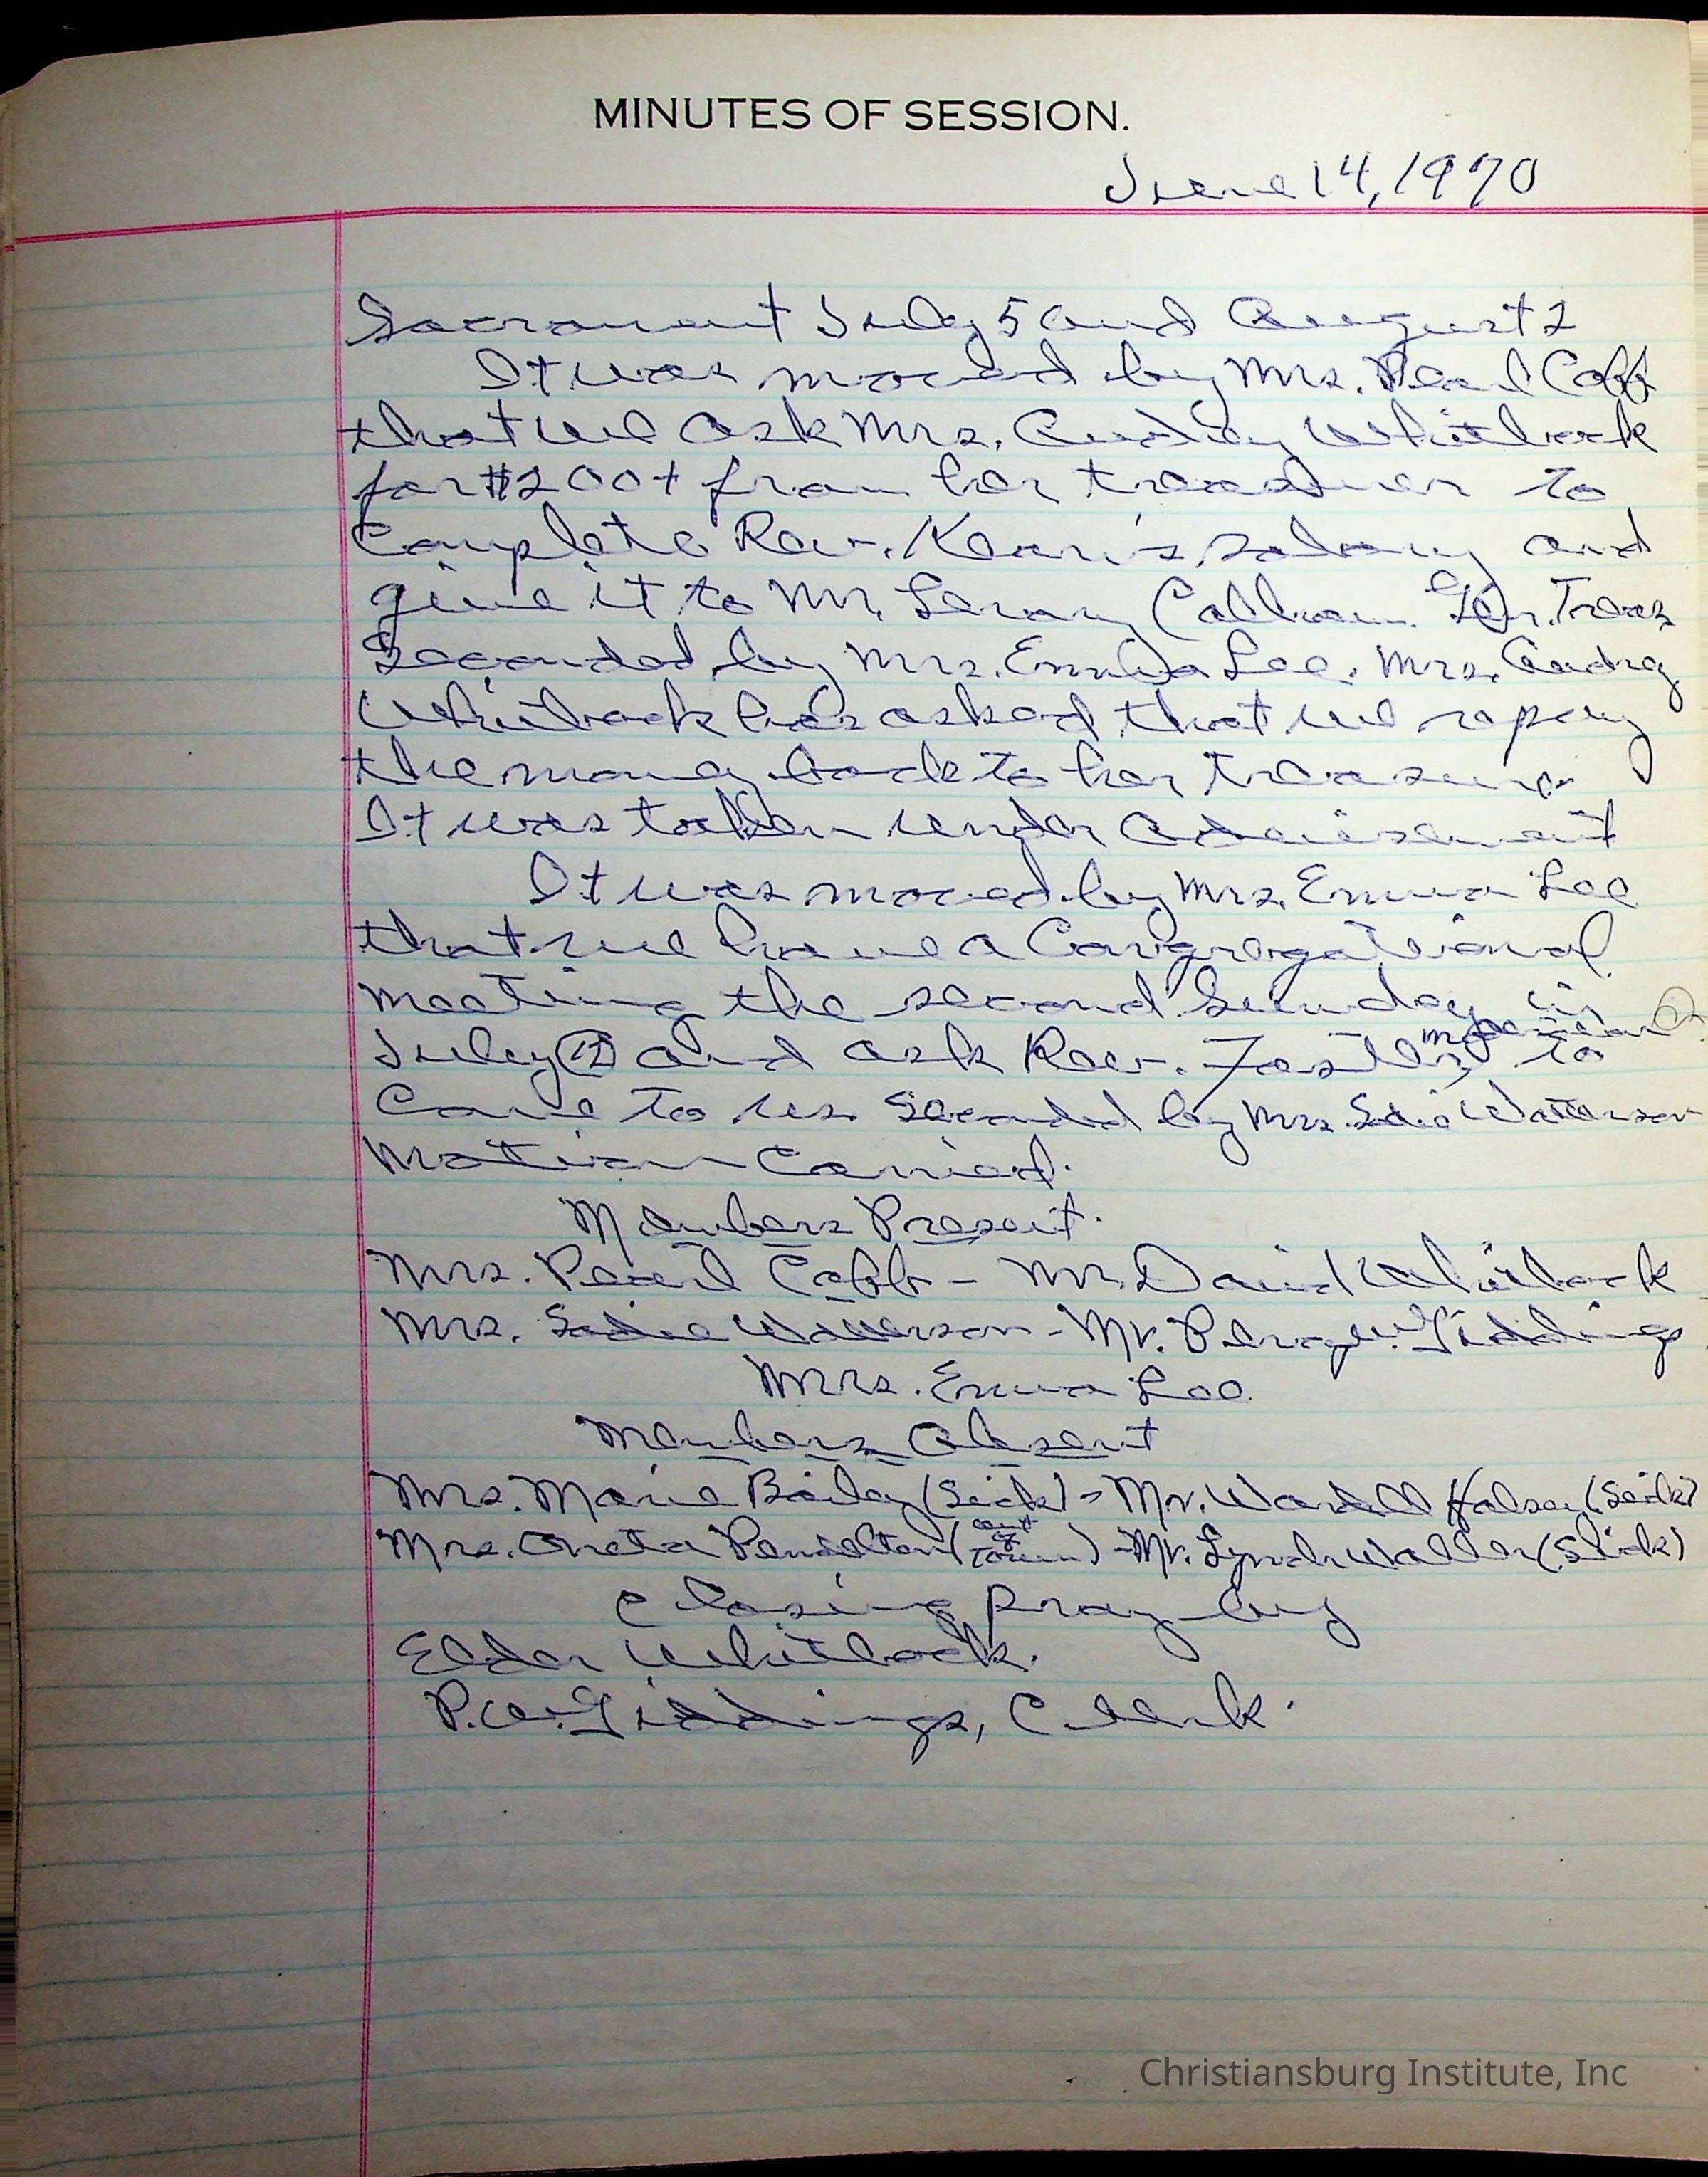 MINUTES OF SESSION.
June 14, 1970
Sacrament July 5 and August 2
It was moved by Mrs. Pearl Cobb
that we ask Mrs. Audry Whitlock
for $200+ from her treasurer to
Complete Rev. Kearn's salary and
give it to Mr. Leroy Calhoun. Gen. Treas
Seconded by Mrs. Emma Lee. Mrs. Audry
Whitlock has asked that we repay
the money back to her treasurer
It was taken under advisement
It was moved by Mrs. Emma Lee
that we have a Congregational
meeting the second Sunday in
July (12) and ask Rev. Foster, moderator to
Come to us. Seconded by Mrs. Sadie Watterson
Motion Carried.
Members Present.
Mrs. Pearl Cobb - Mr. David Whitlock
Mrs. Sadie Watterson - Mr. Perry W. Giddings
Mrs. Emma Lee
Members Absent
Mrs. Marie Bailey (Sick) - Mr. Wardell Halsey (Sick)
Mrs. Oneta Pendelton (out of Town) - Mr. Lynch Waller (Sick)
Closing Pray by
Elder Whitlock.
P.W. Giddings, Clerk.
Christiansburg Institute, Inc